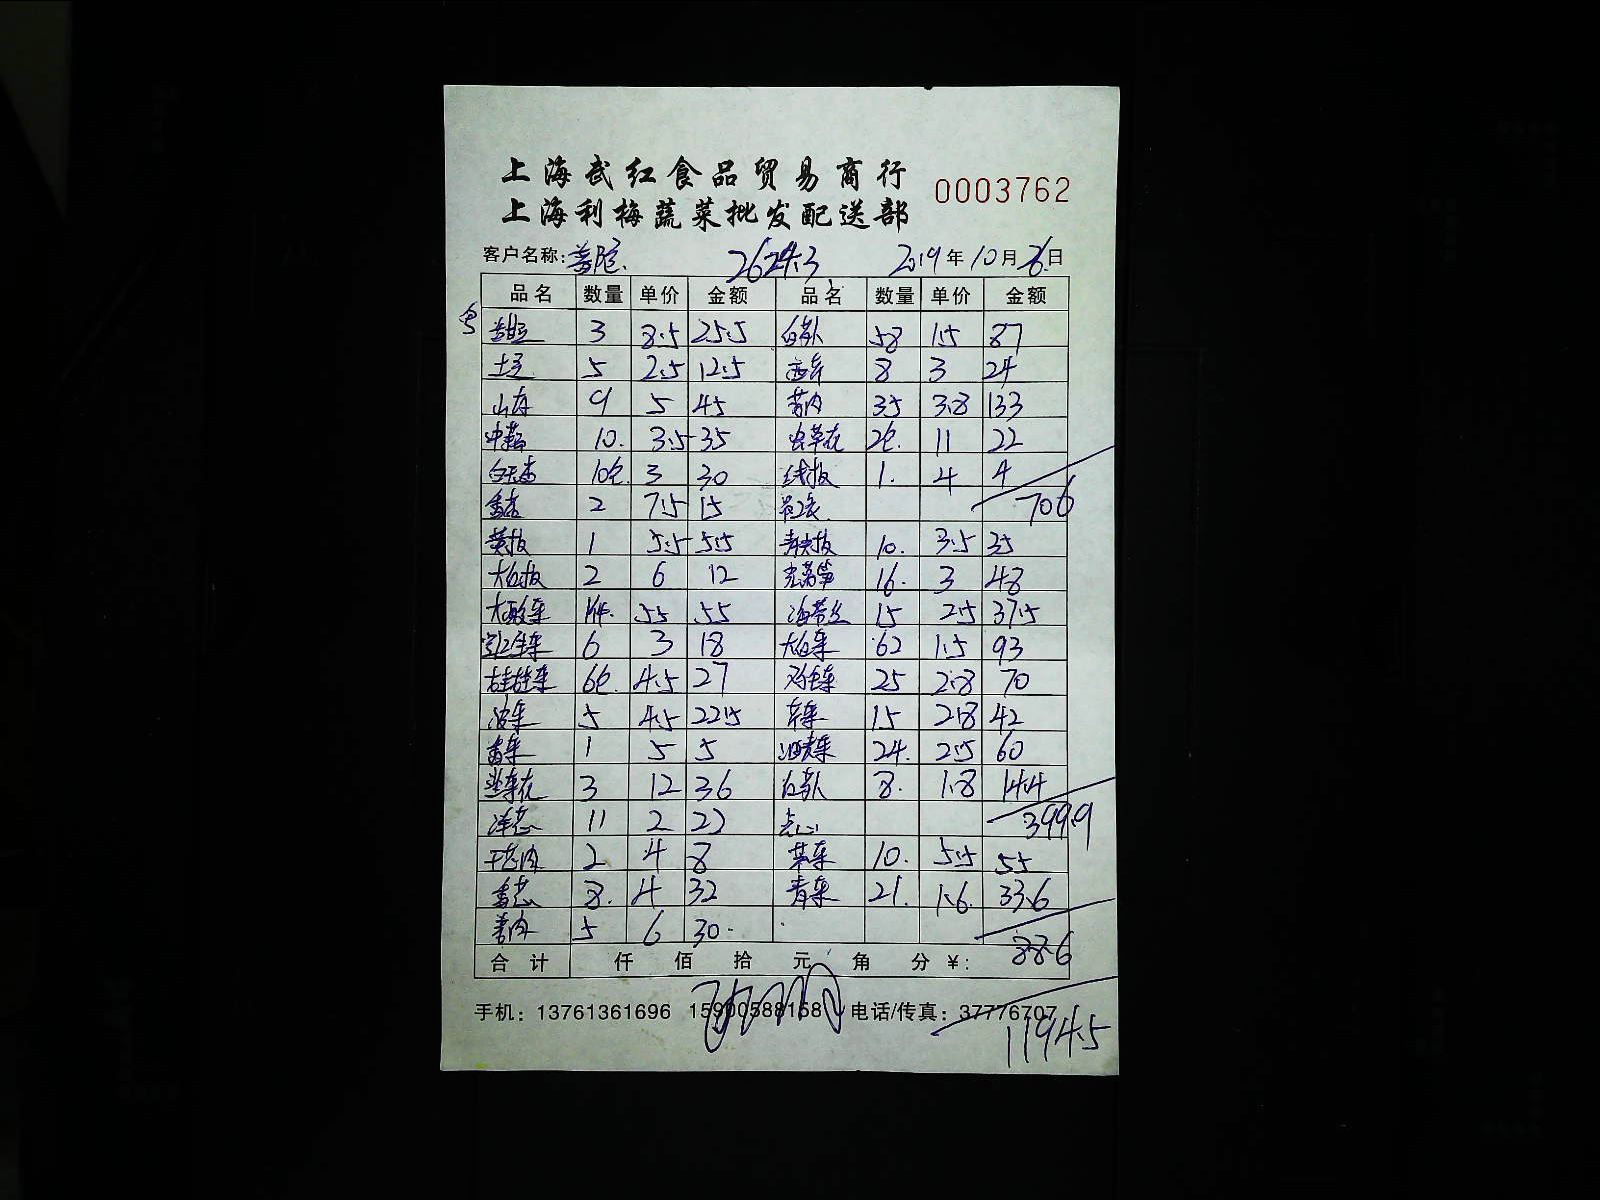 上海武红食品贸易商行
0003762
上海利梅蔬菜批发配送部
客户名称: 普陀. 2624.3 2019年10月26日
品名 数量 单价 金额 品名 数量 单价 金额
3 8.5 25.5 58 1.5 87
土豆 5 2.5 12.5 西芹 8 3 24
山药 9 5 45 35 3.8 133
10. 3.5 35 虫草花 2包. 11 22
10包. 3 30 线椒 1. 4 4
香菇 2 7.5 15 706
黄椒 1 5.5 5.5 青尖椒 10. 3.5 35
大红椒 2 6 12 莴笋 16. 3 48
大酸菜 1件. 55 55 海带丝 15 2.5 37.5
6 3 18 大白菜 62 1.5 93
娃娃菜 6包. 4.5 27 25 2.8 70
菠菜 5 4.5 22.5 芹菜 15 2.8 42
香菜 1 5 5 24. 2.5 60
3 12 36 8. 1.8 14.4
洋葱 11 2 22 点心 399.9
2 4 8 10. 5.5 55
香葱 8. 4 32 青菜 21. 1.6. 33.6
5 6 30. 88.6
合计 仟 佰 拾 元 角 分 ¥:
手机: 13761361696 15900588168 电话/传真: 37776707
1194.5